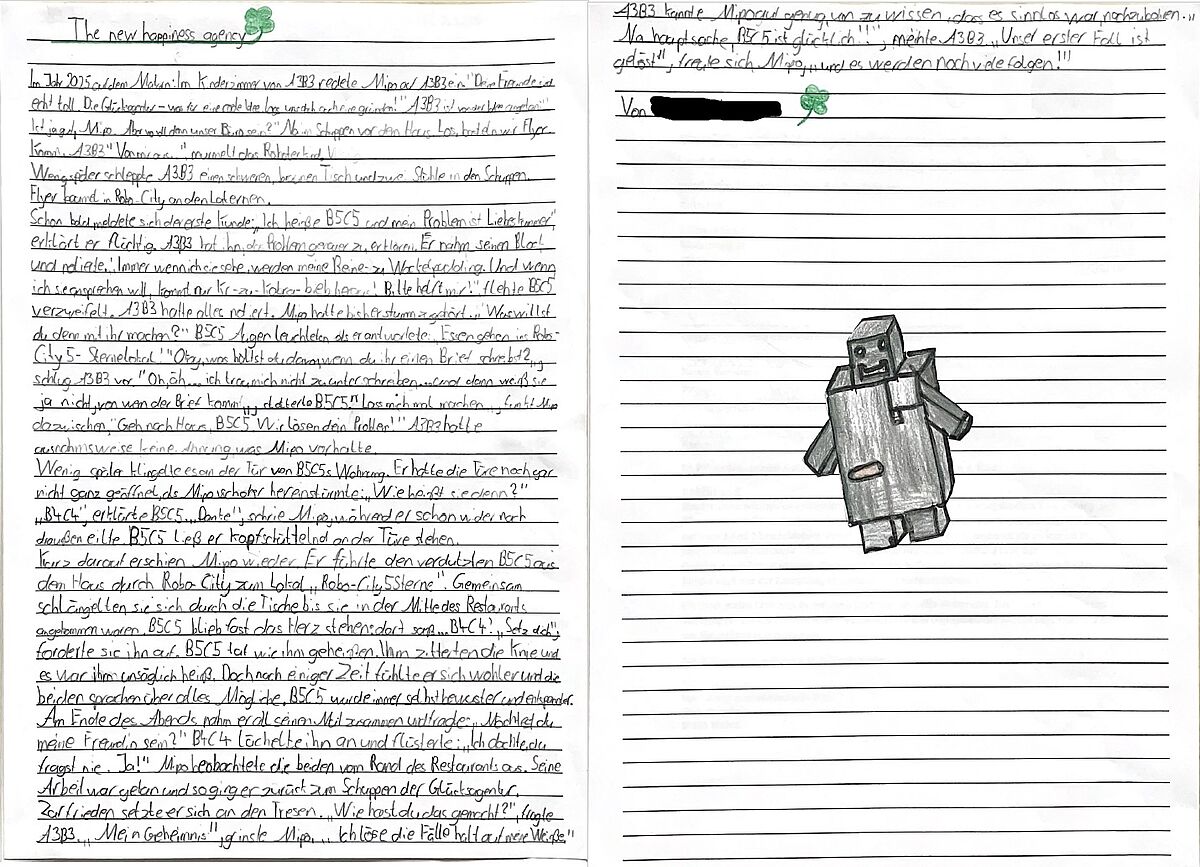 The new happiness agency
Im Jahr 2025 auf dem Mond: Im Kinderzimmer von A3B3 redete Mipo auf A3B3 ein: "Deine Freunde sind
echt toll. Die Glücksagentur – was für eine Idee. Los, uns doch auch eine gründen!" A3B3 ist von der Idee
"Ist ja gut, Mipo. Aber wo soll denn unser Büro sein?" "Na im Schuppen vor dem Haus. Los, wir Flyer.
Komm, A3B3" "Von mir aus...", murmelt das Roboterkind.
Wenig später schleppte A3B3 einen schweren, braunen Tisch und zwei Stühle in den Schuppen.
Flyer in Robo-City an den Laternen.
Schon bald meldete sich der erste Kunde: „Ich heiße B5C5 und mein Problem ist Liebeskummer",
erklärt er flüchtig. A3B3 bat ihn, das Problem genauer zu erklären. Er nahm seinen Block
und notierte. "Immer wenn ich sie sehe, werden meine Beine zu Wackelpudding. Und wenn
ich sie ansprechen will, kommt nur heraus! Bitte helft mir!" flehte B5C5
verzweifelt. A3B3 hatte alles notiert. Mipo hatte bisher stumm zugehört. „Was willst
du denn mit ihr machen?" B5C5 Augen leuchteten als er antwortete: „Essen gehen ins Robo-
City 5-Sternelokal." "Okay, was hältst du davon, wenn du ihr einen Brief schreibst?",
schlug A3B3 vor. "Oh, äh... ich trau mich nicht zu unterschreiben... und dann weiß sie
ja nicht, von wem der Brief kommt", stotterte B5C5. "Lass mich mal machen", funkt Mipo
dazwischen, "Geh nach Haus, B5C5. Wir lösen dein Problem!" A3B3 hatte
ausnahmsweise keine Ahnung, was Mipo vorhatte.
Wenig später klingelte es an der Tür von B5C5s Wohnung. Er hatte die Türe noch gar
nicht ganz geöffnet, als Mipo schon hereinstürmte: „Wie heißt sie denn?"
„B4C4", erklärte B5C5. „Danke", schrie Mipo, während er schon wider nach
draußen eilte. B5C5 ließ er kopfschüttelnd an der Türe stehen.
Kurz darauf erschien Mipo wieder. Er führte den verdutzten B5C5 aus
dem Haus durch Robo-City zum Lokal „Robo-City 5 Sterne". Gemeinsam
schlängelten sie sich durch die Tische bis sie in der Mitte des Restaurants
angekommen waren. B5C5 blieb fast das Herz stehen: dort sass... B4C4! „Setz dich",
forderte sie ihn auf. B5C5 tat wie ihm geheißen. Ihm zitterten die Knie und
es war ihm unsäglich heiß. Doch nach einiger Zeit fühlte er sich wohler und die
beiden sprachen über alles Mögliche. B5C5 wurde immer selbstbewusster und entspannter.
Am Ende des Abends nahm er all seinen Mut zusammen und fragte: „Möchtest du
meine Freundin sein?" B4C4 lächelte ihn an und flüsterte: „Ich dachte, du
fragst nie. Ja!" Mipo beobachtete die beiden vom Rand des Restaurants aus. Seine
Arbeit war getan und so ging er zurück zum Schuppen der Glücksagentur.
Zufrieden setzte er sich an den Tresen. „Wie hast du das gemacht?", fragte
A3B3. „Mein Geheimnis", grinste Mipo, „Ich löse die Fälle halt auf meine Weiße."
A3B3 kannte Mipo gut genug um zu wissen, dass es sinnlos war, nachzubohren. „
Na hauptsache B5C5 ist glücklich!!", meinte A3B3. „Unser erster Fall ist
gelöst", freute sich Mipo, „und es werden noch viele folgen!!"
Von